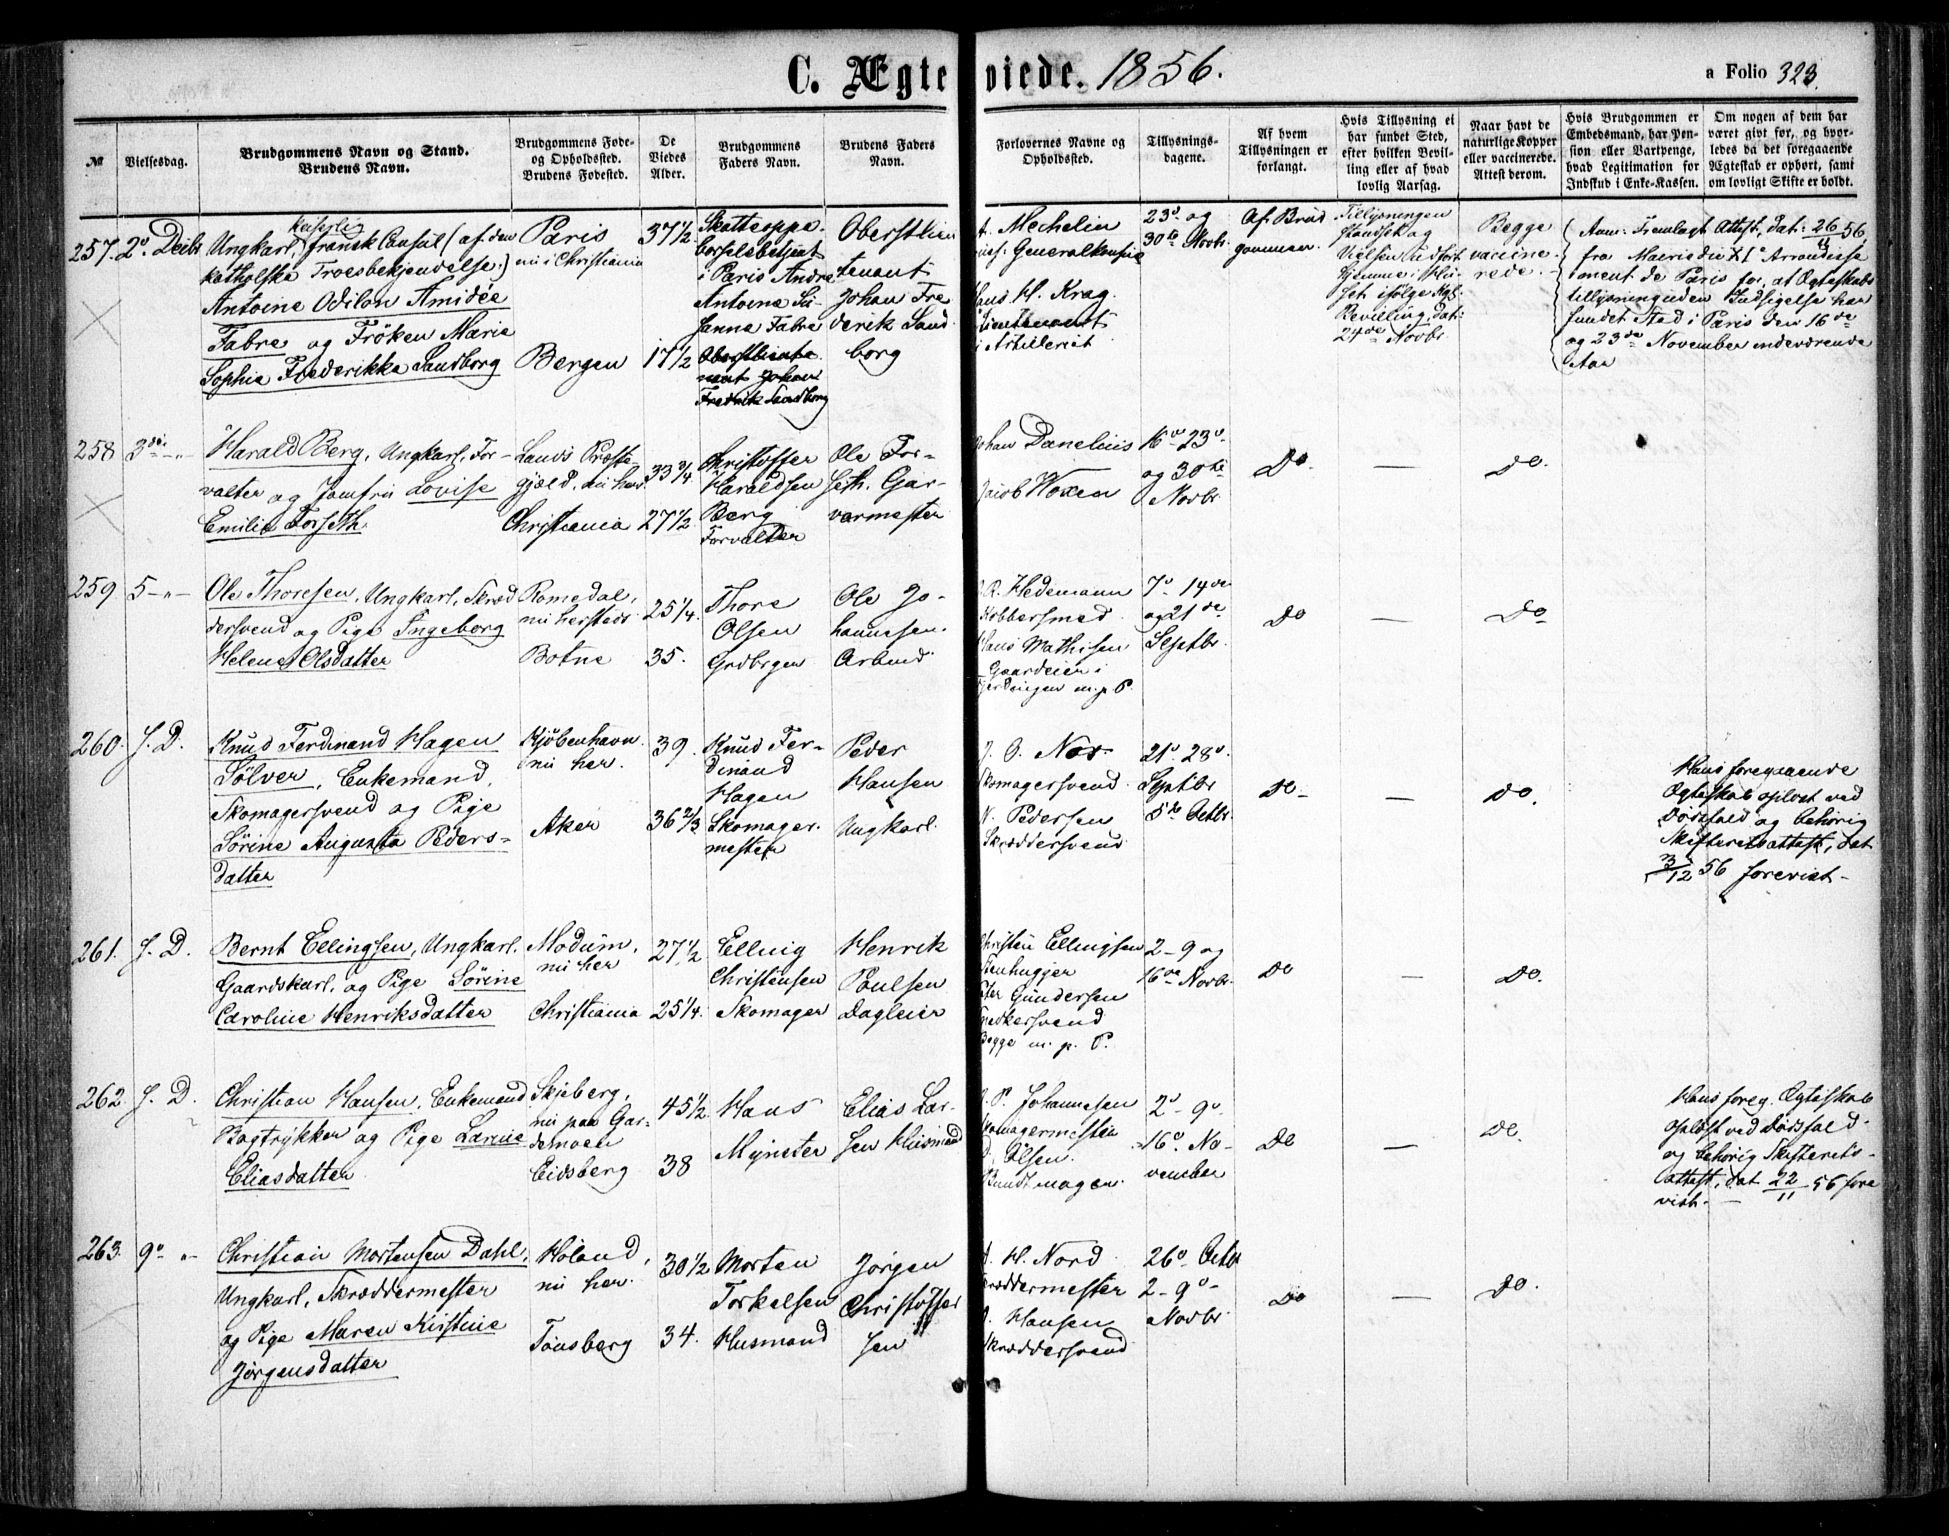 C. Ægteviede. 1856.
a Folio 323.
№
Vielsesdag.
Brudgommens Navn og Stand.
Brudens Navn.
Brudgommens Føde-
og Opholdssted.
Brudens Fødested.
De
Viedes
Alder.
Brudgommens
Faders Navn.
Brudens Faders
Navn.
Forlovernes Navne og
Opholdssted.
Tillysnings-
dagene.
Af hvem
Tillysningen er
forlangt.
Hvis Tillysning ei
har fundet Sted,
efter hvilken Bevil-
ling eller af hvad
lovlig Aarsag.
Naar havt de
naturlige Kopper
eller vaccinerede.
Attest derom.
Hvis Brudgommen er
Embedsmand, har Pen-
sion eller Vartpenge,
hvad Legitimation for
Indskud i Enke-Kassen.
Om nogen af dem har
været gift før, og hvor-
ledes da det foregaaende
Ægteskab er ophørt, samt
om lovligt Skifte er holdt.
257. 2º Decbr
keiserlig
Ungkarl, fransk Consul (af den
katholske Troesbekjendelse)
Antoine Odilon Amidée
Fabre og Frøken Marie
Sophie Frederikke Sandborg
Paris
nu i Christiania
Bergen
37 1/2
17 1/2
i Paris Andre
Antoine Su-
sanne Fabre
Oberstlieute
nant Johan
Fredrik Sandborg
Oberstlieu
tenant
Johan Fre
derik Sand
borg
Mechelin
Generalkonsul
Hans H. Krag
Lieutenant
i Artilleriet
23º og
30te Novbr.
Af Brud
gommen
Tillysningen
Vielsen udført
hjemme i Hu-
set ifølge Kgl.
Bevilling, dat:
24de Novbr.
Begge
vaccine-
rede.
Anm: Fremlagt Attest, dat: 26/11 56,
fra Mairie du X1º Arrondisse
ment de Paris for, at Ægteskabs
tillysning uden Indsigelse har
fundet Sted i Paris den 16de
og 23de November indeværende
Aar
258 3die -"-
Harald Berg, Ungkarl, For-
valter og Jomfru Lovise
Emilie Forseth.
Lands Præste
gjæld, nu her
Christiania
33 3/4
27 1/2
Christoffer
Haraldsen
Berg
Forvalter
Ole For-
seth. Gar-
vermester
Johan Danelius
Jacob Woxen
16º 23º
og 30te
Novbr.
Do.
—
Do.
259 5-"-
Ole Thoresen, Ungkarl, Skræd
dersvend og Pige Ingeborg
Helene Olsdatter
Romedal,
nu hersteds
Botne
25 1/4.
35.
Thore
Olsen
Grdbrgen
Ole Jo-
hannesen.
Arbmd.
R. Hedemann
Kobbersmed
Hans Mathisen
Gaardeier i
m. p. P.
7º 14de
og 21de
Septbr.
Do
—
Do
260. J. D.
Knud Ferdinand Hagen
Sölver, Enkemand,
Skomagersvend og Pige
Sörine Augusta Peders-
datter
Kjöbenhavn.
nu her.
Aker
39.
36 2/3
Knud Fer-
dinand
Hagen
Skomager-
mester
Peder
Hansen
Ungkarl.
J. O. Nor
Skomagersvend
N. Pedersen
Skræddersvend
21º 28º.
Septbr
5te Octbr.
Do-
—
Do.
Hans foregaaende
Ægteskab oplöst ved
Dödsfald og behörig
Skifteretsattest, dat
3/12 56 forevist-
261. J. D.
Bernt Ellingsen, Ungkarl.
Gaardskarl, og Pige Sörine
Caroline Henriksdatter
Modum,
nu her
Christiania
27 1/2
25 1/4.
Elling
Christensen
Skomager
Henrik
Poulsen
Dagleier
Christen Ellingsen
Stenhugger
Peter Gundersen
Snedkersvend
Begge m. p. P.
2-9 og
16de Novbr.
Do
—
Do.
262. J. D.
Christian Hansen, Enkemand
Bogtrykker og Pige Larine
Eliasdatter
Skjeberg,
nu paa Gar-
dermoen
Eidsberg
45 1/2
38
Hans
Mynster
Elias Lar-
sen Huusmand
P. Johannesen
Skomagermester
Olsen.
Buntmager.
2º-9º
-16º. No-
vember
Do
—
Do.
Hans foreg. Ægteskab
oplöst ved Dödsfald-
og behörig Skifterets-
attest, dat 22/11 56 fore
vist-
263. 9º -"-
Christian Mortensen Dahl,
Ungkarl, Skræddermester
og Pige Maren Kirstine
Jörgensdatter
Höland,
nu her.
Tönsberg
30 1/2
34.
Morten
Torkelsen
Husmand
Jörgen
Christoffer
sen
H. Nord
Skræddermester
Hansen
Skræddersvend
26º Octbr
2-9º-
Novbr
Do
—
Do.